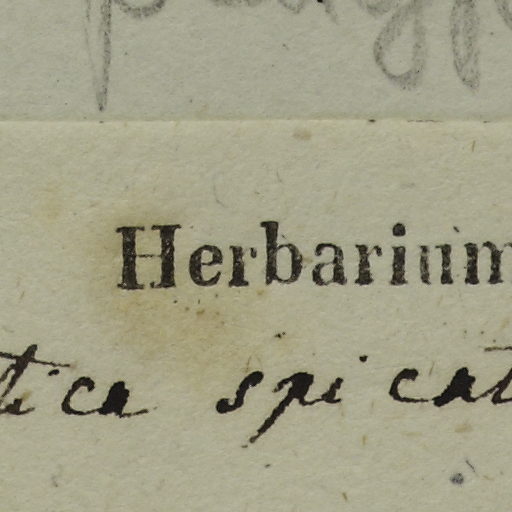 Herbarium
tica spicat